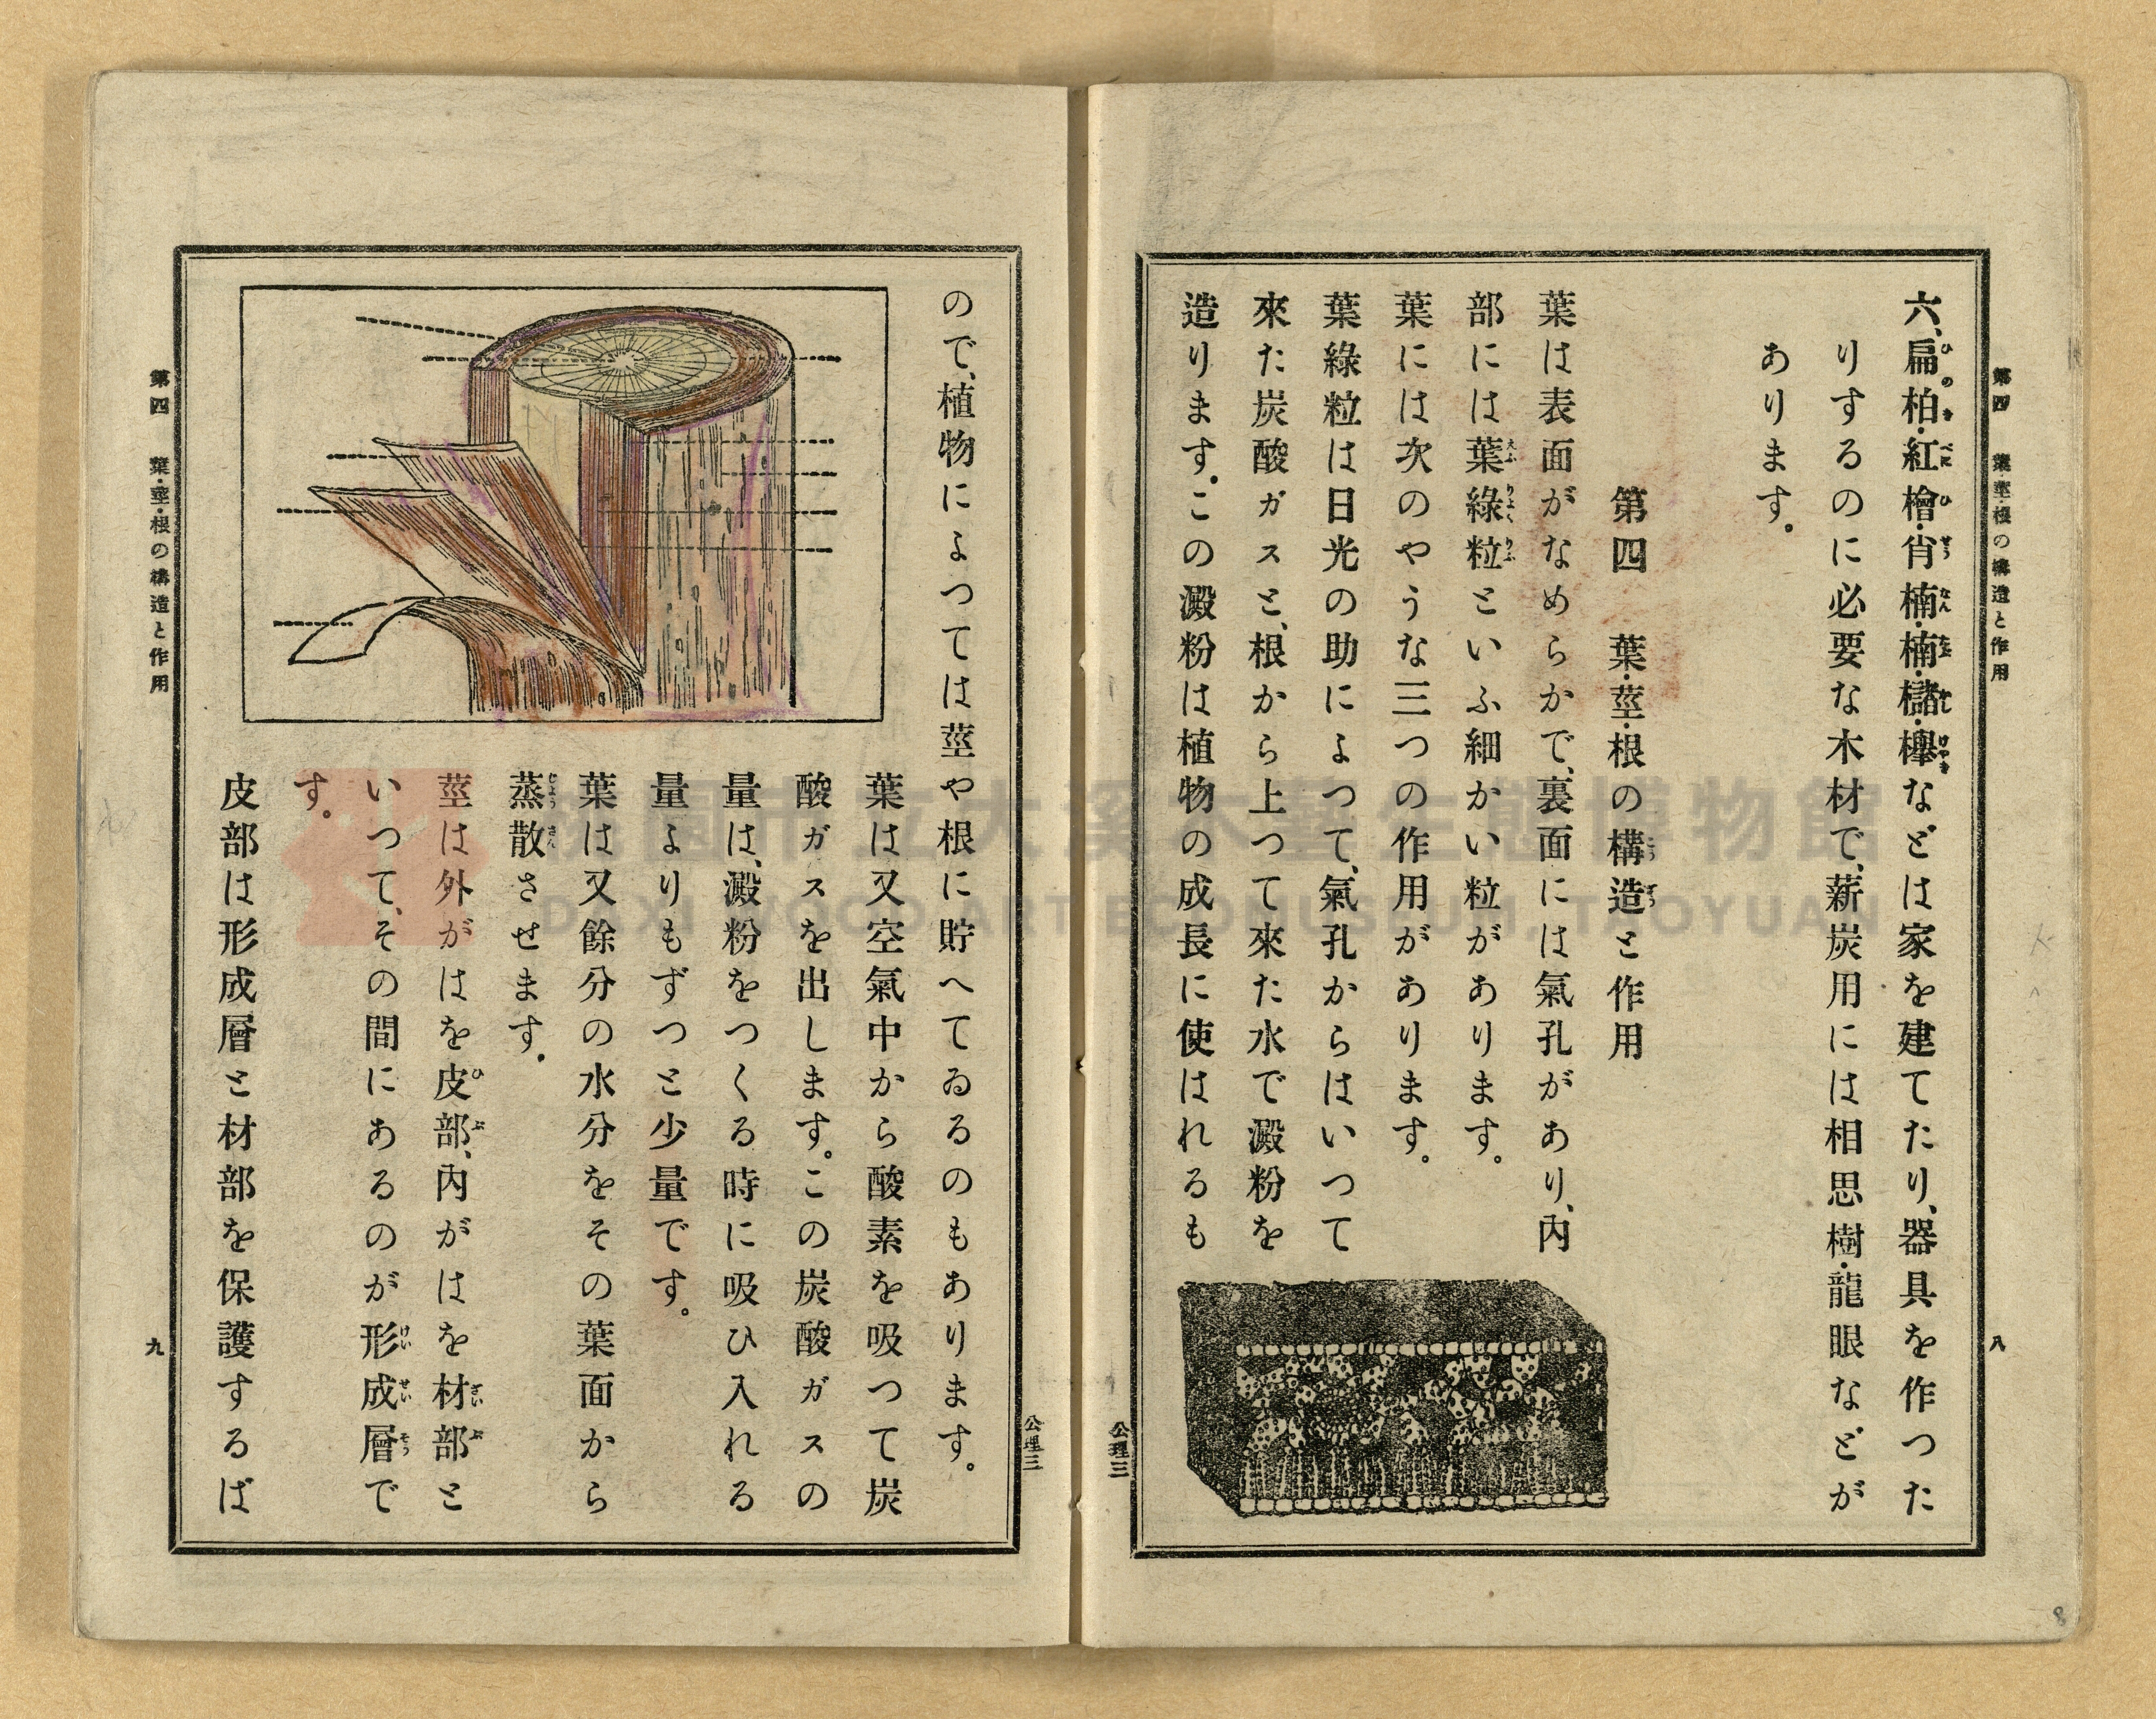 第四　葉・莖・根の構造と作用
八
六、扁柏・紅檜・肖楠・楠・櫧・欅などは家を建てたり、器具を作つた
りするのに必要な木材で、薪炭用には相思樹・龍眼などが
あります。
第四　葉・莖・根の構造と作用
葉は表面がなめらかで、裏面には氣孔があり、内
部には葉綠粒といふ細かい粒があります。
葉には次のやうな三つの作用があります。
葉綠粒は日光の助によつて、氣孔からはいつて
來た炭酸ガスと、根から上つて來た水で澱粉を
造ります。この澱粉は植物の成長に使はれるも
公理三
公理三
ので、植物によつては莖や根に貯へてゐるのもあります。
葉は又空氣中から酸素を吸つて炭
酸ガスを出します。この炭酸ガスの
量は、澱粉をつくる時に吸ひ入れる
量よりもずつと少量です。
葉は又餘分の水分をその葉面から
蒸散させます。
莖は外がはを皮部、内がはを材部と
いつて、その間にあるのが形成層で
す。
皮部は形成層と材部を保護するば
第四　葉・莖・根の構造と作用
九
8
DAXI WOOD ART ECOMUSEUM, TAOYUAN